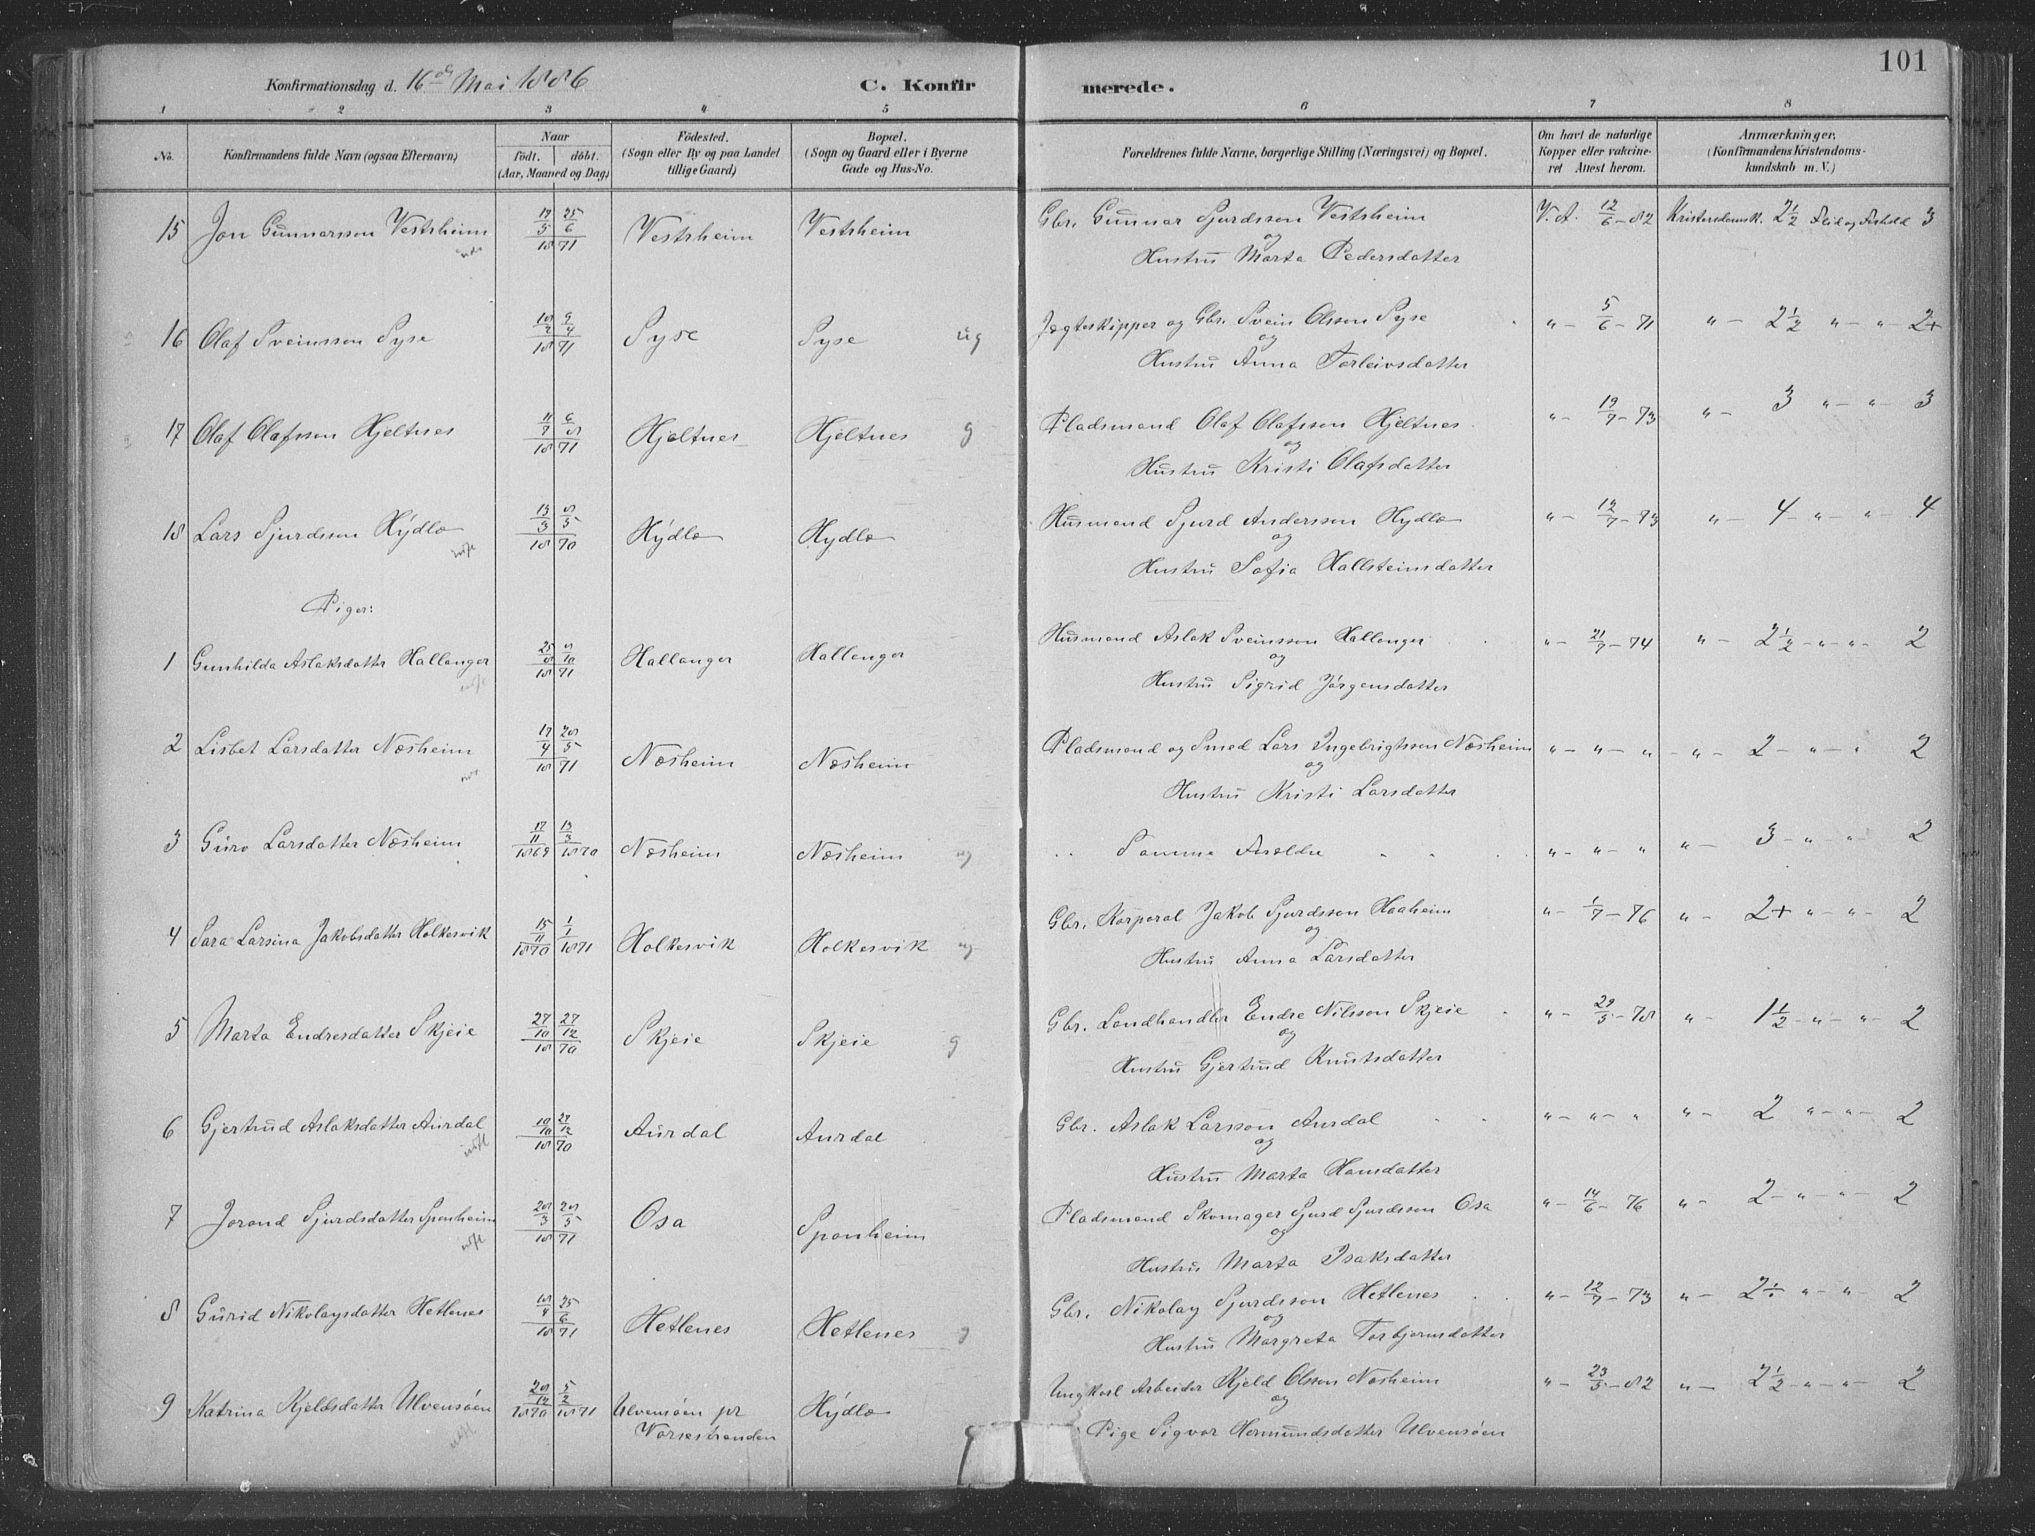 101
Konfirmationsdag d. 16de Mai 1886
C. Konfirmerede.
1 2 3 4 5 6 7 8
No.
Konfirmandens fulde Navn (ogsaa Efternavn)
Naar
födt. döbt.
(Aar, Maaned og Dag)
Födested.
(Sogn eller By og paa Landet
tillige Gaard)
Bopæl.
(Sogn og Gaard eller i Byerne
Gade og Hus-No.
Forældrenes fulde Navne, borgerlige Stilling (Næringsvei) og Bopæl.
Om havt de naturlige
Kopper eller vakcineret
Attest herom.
Anmærkninger.
(Konfirmandens Kristendomskundskab
m. V.)
15 Jon Gunnarsson Vestrheim 17/5 25/6 1871 Vestrheim Vestrheim Gbr. Gunnar Sjurdsson Vestrheim V.A. 12/6-82 Kristendomsk. 2½ Flid og Forhold 3
og
Hustru Marta Pedersdatter
16 Olaf Sveinsson Syse 18/2 9/4 1871 Syse Syse ug Jægteskipper og Gbr. Svein Olsson Syse „ – 5/6-71 „ – 2½ „ – „ – 2+
og
Hustru Anna Torleivsdatter
17 Olaf Olafsson Hjeltnes 11/7 6/8 1871 Hjeltnes Hjeltnes g Pladsmand Olaf Olafsson Hjeltnes „ – 19/7-73 „ – 3 „ – „ – 3
og
Hustru Kristi Olafsdatter
18 Lars Sjurdsson Hýdle 13/3 8/5 1870 Hýdle Hydle Husmand Sjurd Andersson Hydle „ – 12/7-73 „ – 4 – „ – „ – 4
og
Hustru Sofia Hallsteinsdatter
Piger:
1 Gunhilda Aslaksdatter Hallanger 25/8 8/10 1871 Hallanger Hallanger Husmand Aslak Sveinsson Hallanger „ – 21/7-74 „ – 2½ – „ – „ – 2
og
Hustru Sigrid Jörgensdatter
2 Lisbet Larsdatter Næsheim 17/4 28/5 1871 Næsheim Næsheim Pladsmand og Smed Lars Ingebrigtsson Næsheim „ – „ – „ – „ – 2 – „ – „ 2
og
Hustru Kristi Larsdatter
3 Guro Larsdatter Næsheim 17/11 1869 13/3 1870 Næsheim Næsheim ug Samme Forældre „ – „ – „ „ – 3 – „ – „ – 2
4 Sara Larsina Jakobsdatter Holkesvik 15/11 1870 1/1 1871 Holkesvik Holkesvik ug Gbr. Korporal Jakob Sjurdsson Haaheim „ – 1/7-76 „ – 2+ „ – „ – 2
og
Hustru Anna Larsdatter
5 Marta Endresdatter Skjeie 27/10 27/12 1870 Skjeie Skjeie g Gbr. Landhandler Endre Nilsson Skjeie „ – 29/5-78 „ – 1½ – „ – „ – 2
og
Hustru Gjertrud Knutsdatter
6 Gjertrud Aslaksdatter Aurdal 18/10 27/12 1870 Aurdal Aurdal Gbr. Aslak Larsson Aurdal „ – „ – „ „ – 2 „ – „ – 2
og
Hustru Marta Hansdatter
7 Jorand Sjurdsdatter Sponheim 28/3 28/5 1871 Osa Sponheim Pladsmand Skomager Sjurd Sjurdsson Osa „ – 14/6-76 „ – 2 – „ – „ – 2
og
Hustru Marta Isaksdatter
8 Gurid Nikolaysdatter Hetlenes 18/4 25/6 1871 Hetlenes Hetlenes g Gbr. Nikolay Sjurdsson Hetlenes „ – 12/7-73 „ – 2÷ „ – „ – 2
og
Hustru Margreta Torbjornsdatter
9 Katrina Kjeldsdatter Ulvensöen 28/12 1870 5/2 1871 Ulvensöen pr Hýdle Ungkarl Arbeider Kjeld Olsson Næsheim „ – 23/5-82 „ – 2½ – „ – „ – 2
Vorsestranden
og
Pige Sigvor Hermundsdatter Ulvensöen